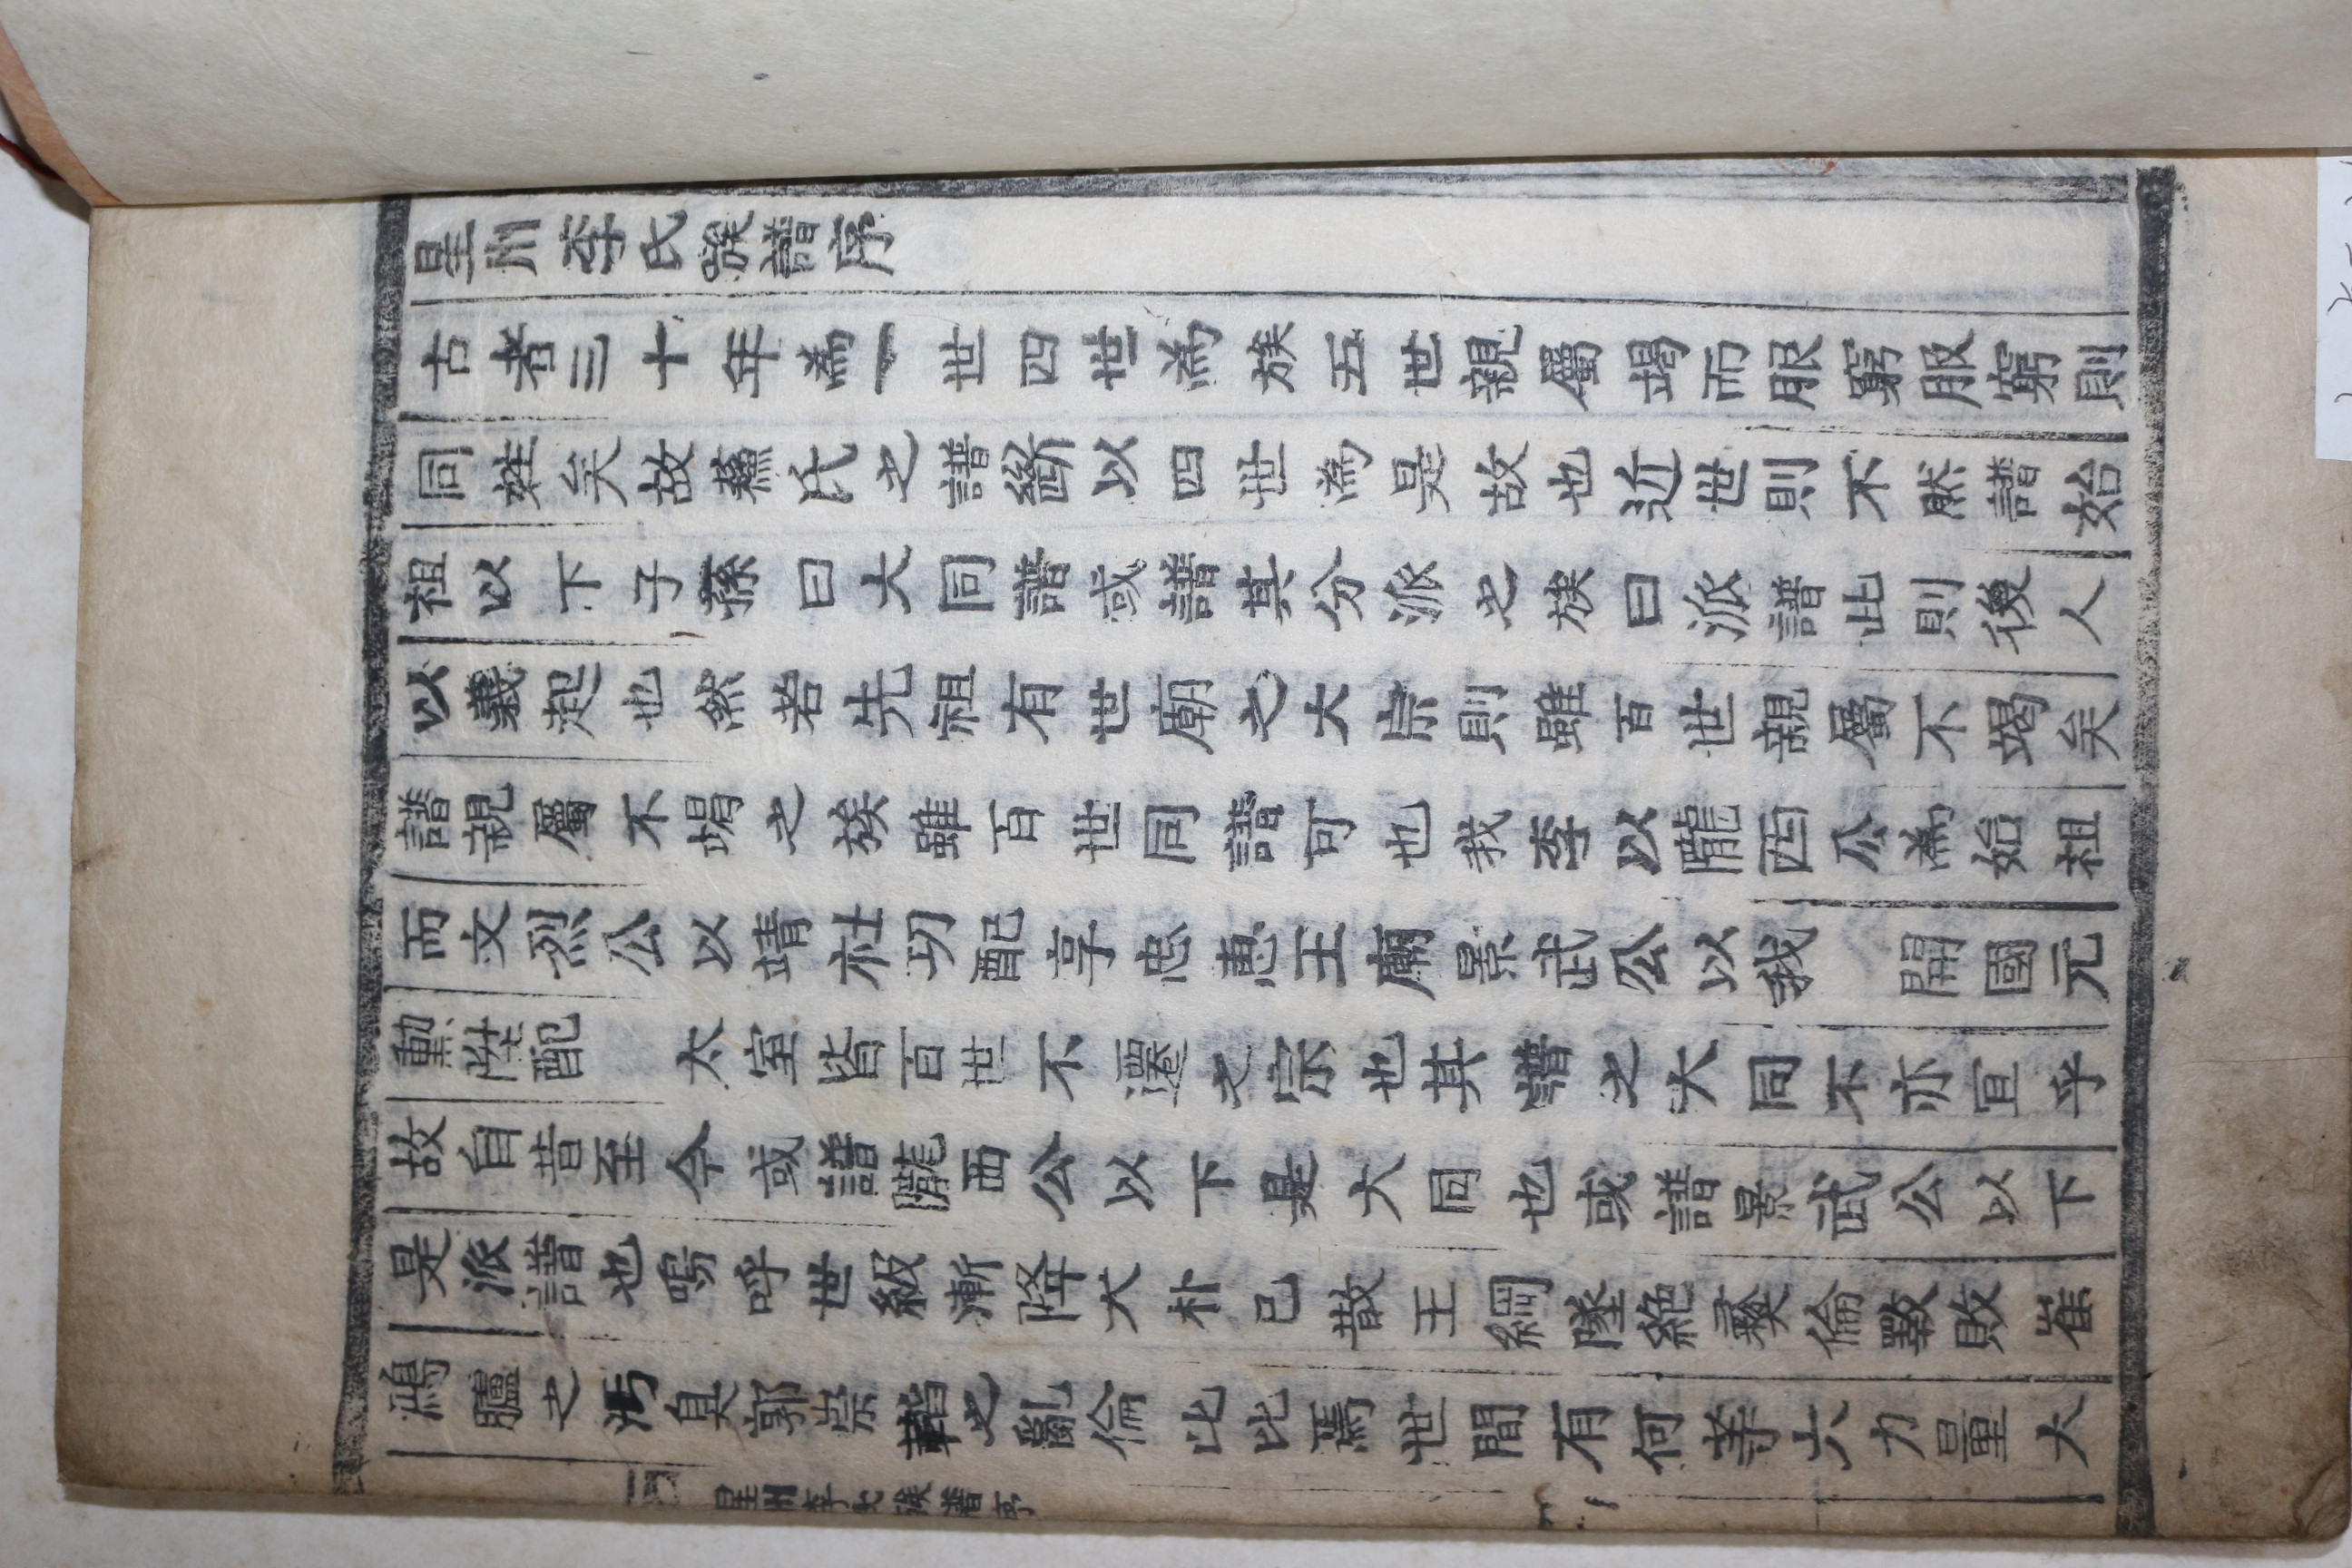 星州李氏族譜序
古者三十年為一世四世為族五世親屬竭而服窮服窮則
同姓矣故蘓氏之譜斷以四世為是故也近世則不然譜始
祖以下子孫曰大同譜或譜其分派之族曰派譜此則後人
以義起也然若先祖有世廟之大宗則雖百世親屬不竭矣
譜親屬不竭之族雖百世同譜可也我李以隴西公為始祖
而文烈公以靖社功配享忠惠王廟景武公以我　開國元
勳陞配　太室皆百世不遷之宗也其譜之大同不亦宜乎
故自昔至今或譜隴西公以下是大同也或譜景武公以下
是派譜也嗚呼世級漸降大朴已散王綱墜絶彜倫斁敗崔
鴻臚之汚臭郭崇韜之亂倫比比焉世間有何等六力量大
星州李氏族譜序